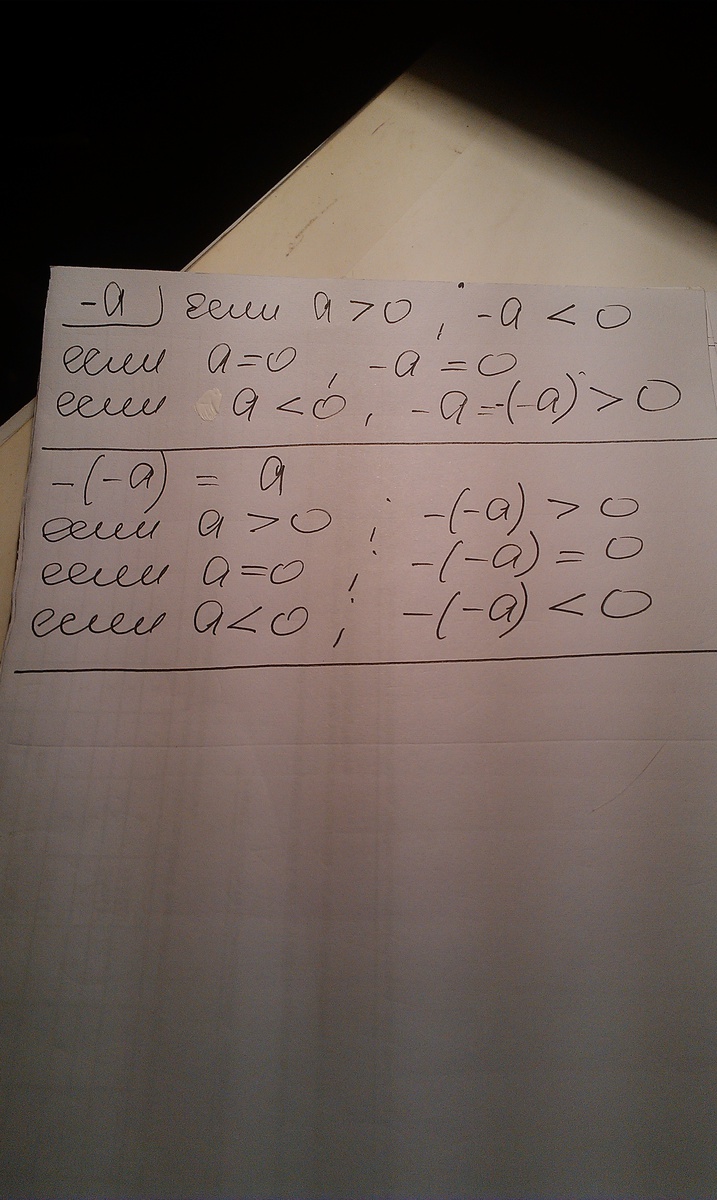 -a) если a > 0, -a < 0
если a=0, -a = 0
если a < 0, -a=-(-a) > 0
-(-a) = a
если a > 0; -(-a) > 0
если a=0; -(-a) = 0
если a<0; -(-a) < 0